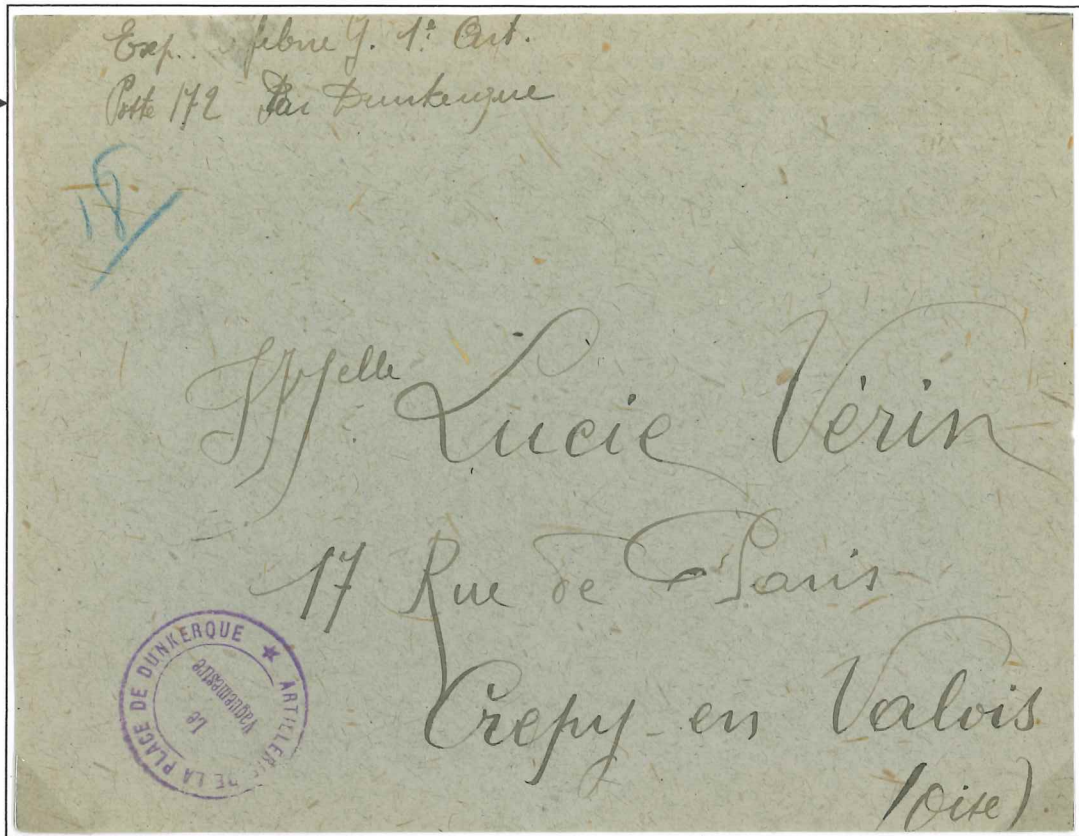 Exp. febvre G. 1e Art.
Poste 172 Par Dunkerque
18
Melle Lucie Vérin
17 Rue de Paris
Crépy en Valois
(Oise)
ARTILLERIE DE LA PLACE DE DUNKERQUE ★
Le
Vaguemestre